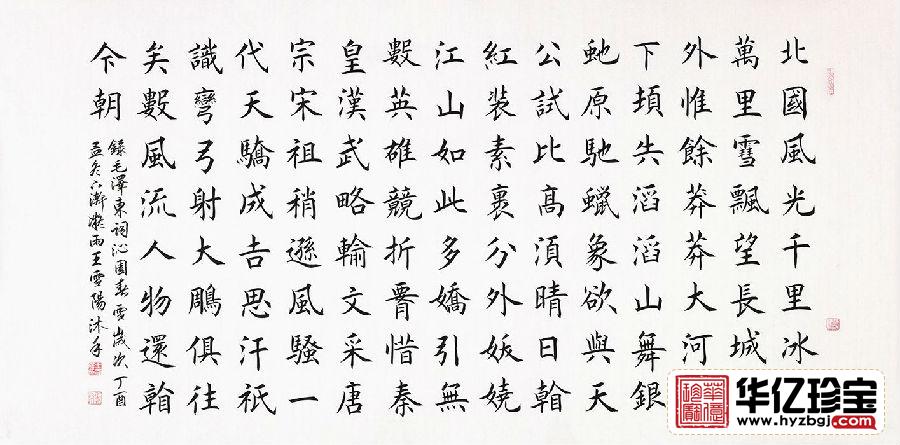 北國風光千里冰
萬里雪飄望長城
外惟餘莽莽大河
下頓失滔滔山舞銀
虵原馳蠟象欲與天
公試比髙須晴日看
紅裝素裹分外妖嬈
江山如此多嬌引無
數英雄競折腰惜秦
皇漢武略輸文采唐
宗宋祖稍遜風騷一
代天驕成吉思汗祇
識彎弓射大鵰俱往
矣數風流人物還看
今朝
錄毛澤東詞沁園春雪歲次丁酉
孟冬雨王雪陽沐手
华亿珍宝
www.hyzbgj.com